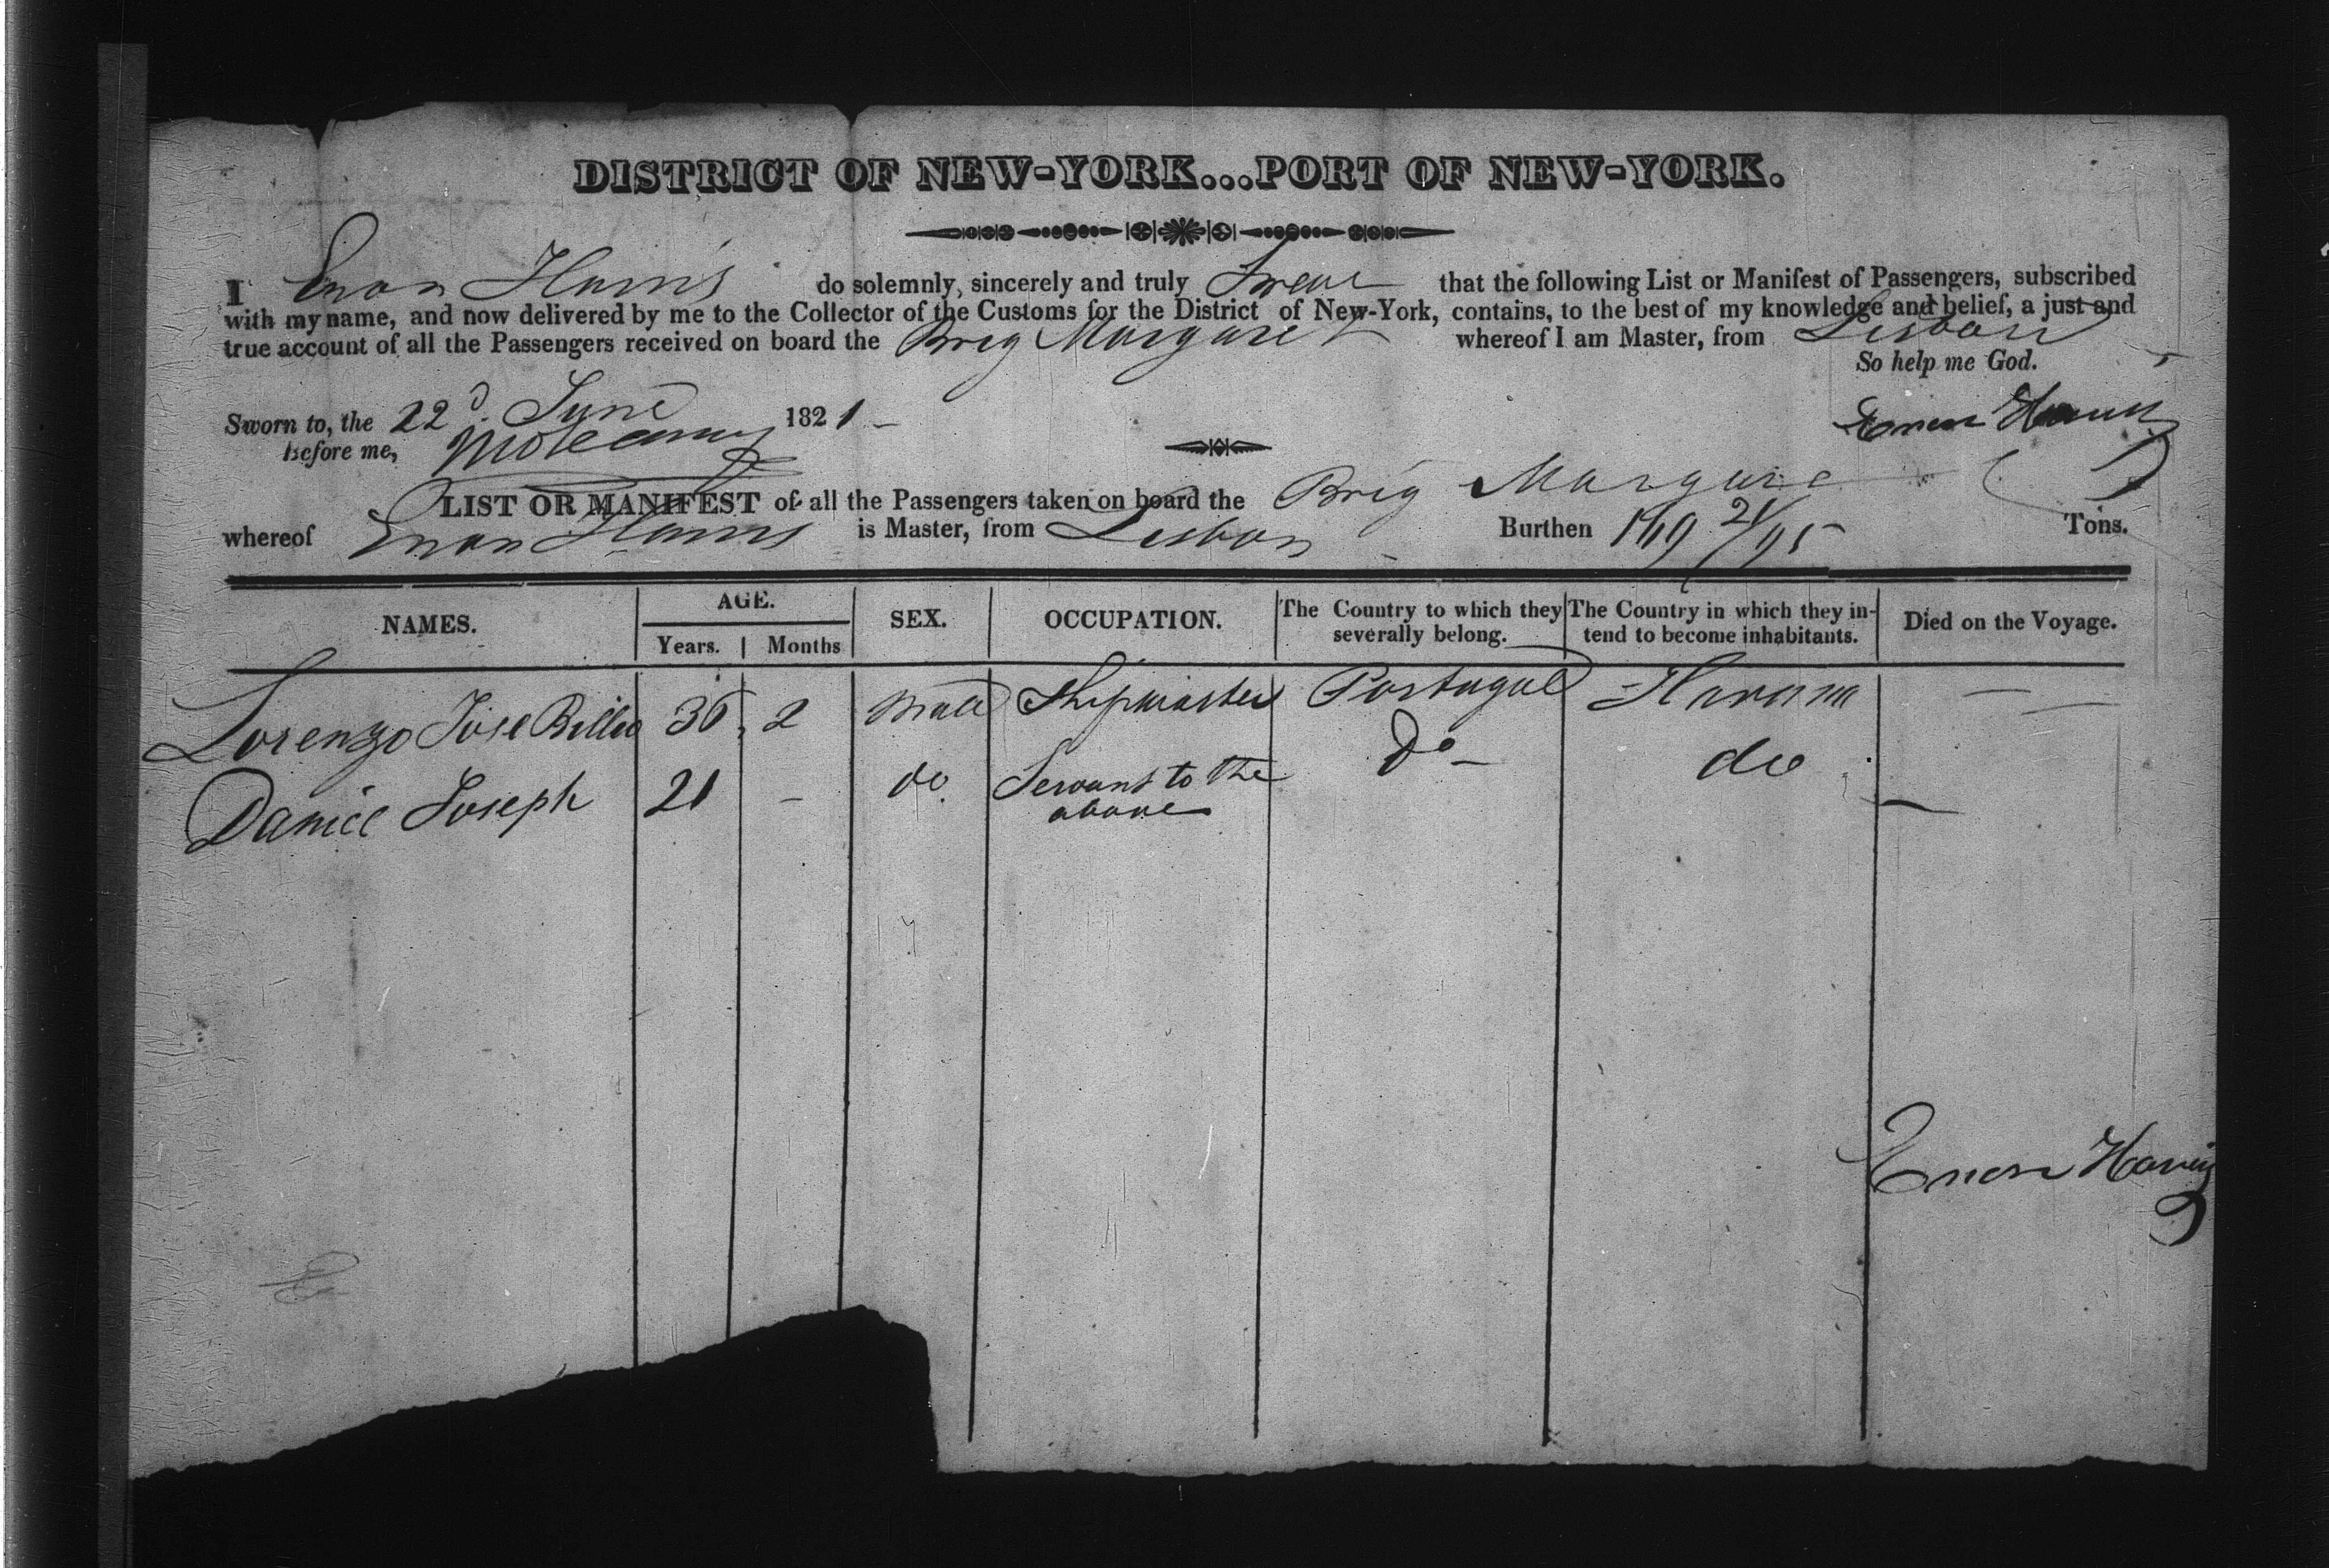 DISTRICT OF NEW-YORK...PORT OF NEW-YORK.
I Enon Harris do solemnly, sincerely and truly Swear that the following List or Manifest of Passengers, subscribed
with my name, and now delivered by me to the Collector of the Customs for the District of New-York, contains, to the best of my knowledge and belief, a just and
true account of all the Passengers received on board the Brig Margaret whereof I am Master, from Lisbon
So help me God.
Sworn to, the 22d. June 1821 -
Enon Harris
Before me,
LIST OR MANIFEST of all the Passengers taken on board the Brig Margaret
whereof Enon Harris is Master, from Lisbon - Burthen 169 21/95 Tons.
NAMES. AGE. Years. Months SEX. OCCUPATION. The Country to which they severally belong. The Country in which they intend to become inhabitants. Died on the Voyage.
Lorenzo Jose 36 2 Male Shipmaster Portugal Havana —
Daniel Joseph 21 - do Servant to the above Do - do —
Enon Harris